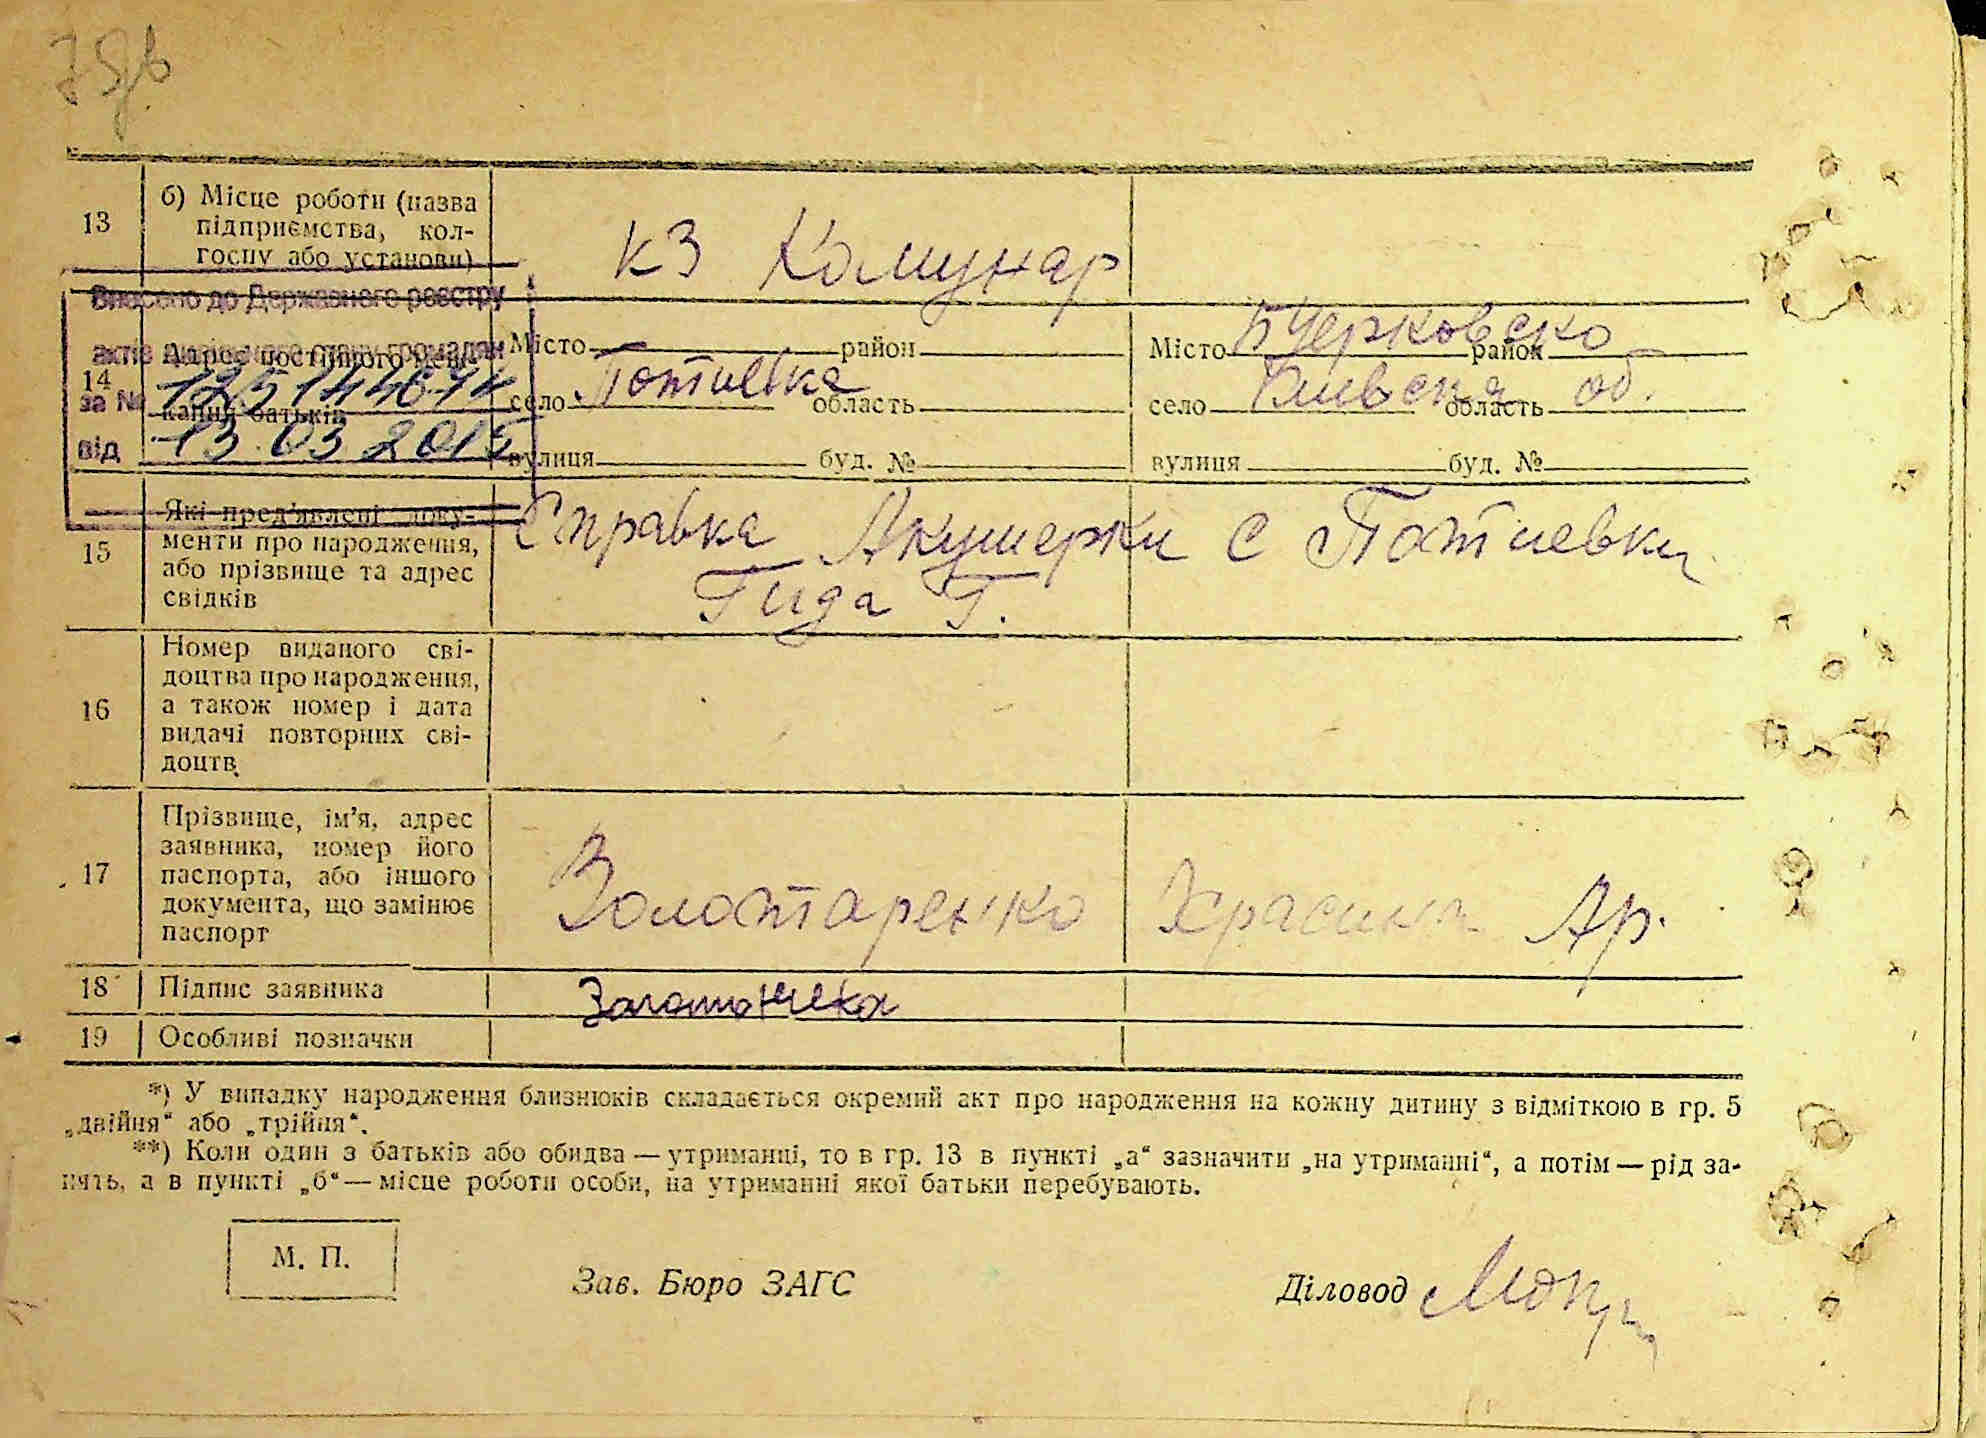 13
б) Місце роботи (назва
підприємства, кол-
госпу або установи)
КЗ Комунар
Внесено до Державного реєстру
актів цивільного стану громадян
за № 12514467
від 13.03.2015
14
Адрес постійного меш-
кання батьків
Місто район
село Потиевка область
вулиця буд. №
Місто БЧерковско район
село Киевска область об.
вулиця буд. №
15
Які пред'явлені доку-
менти про народження,
або прізвище та адрес
свідків
Справка Акушерки с Потиевки
Гида Г.
16
Номер виданого сві-
доцтва про народження,
а також номер і дата
видачі повторних сві-
доцтв
17
Прізвище, ім'я, адрес
заявника, номер його
паспорта, або іншого
документа, що замінює
паспорт
Золотаренко Ар.
18
Підпис заявника
19
Особливі позначки
*) У випадку народження близнюків складається окремий акт про народження на кожну дитину з відміткою в гр. 5
„двійня“ або „трійня“.
**) Коли один з батьків або обидва — утриманці, то в гр. 13 в пункті „а“ зазначити „на утриманні“, а потім — рід за-
нять, а в пункті „б“ — місце роботи особи, на утриманні якої батьки перебувають.
М. П.
Зав. Бюро ЗАГС
Діловод